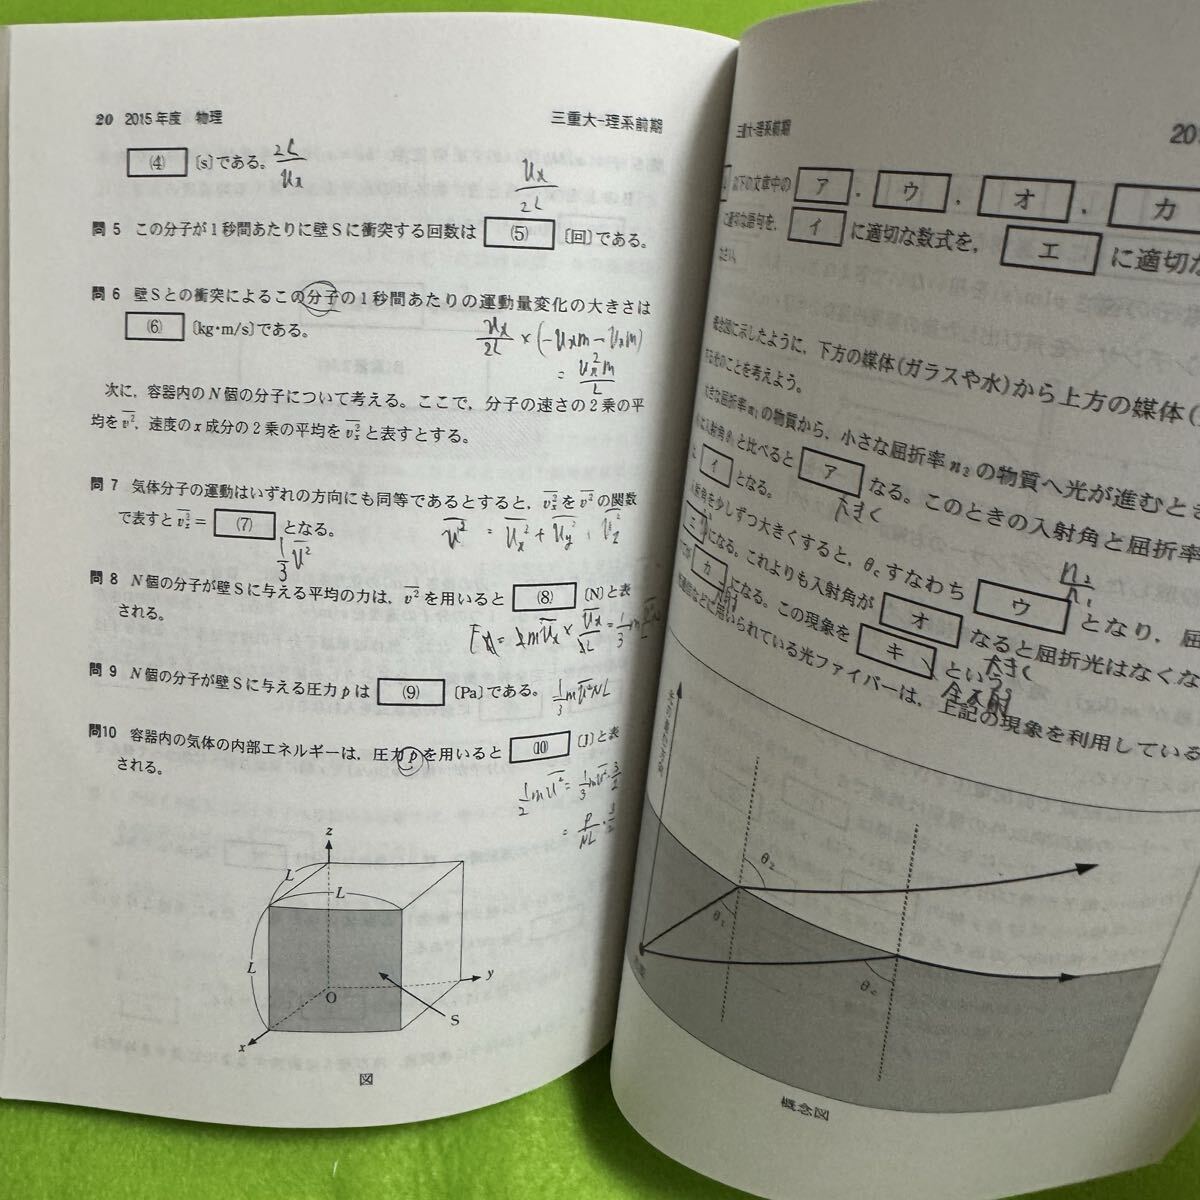 20 2015年度 物理
三重大-理系前期
(4) 〔s〕である。 2L/vx
vx/2L
問5 この分子が1秒間あたりに壁Sに衝突する回数は (5) 〔回〕である。
問6 壁Sとの衝突によるこの分子の1秒間あたりの運動量変化の大きさは
(6) 〔kg・m/s〕である。
vx/2L × (-vxm - vxm)
= vx²m/L
次に，容器内のN個の分子について考える。ここで，分子の速さの2乗の平
均をv²，速度のx成分の2乗の平均をvx²と表すとする。
問7 気体分子の運動はいずれの方向にも同等であるとすると，vx²をv²の関数
で表すとvx² = (7) となる。
1/3 v²
問8 N個の分子が壁Sに与える平均の力は，v²を用いると (8) 〔N〕と表
される。
問9 N個の分子が壁Sに与える圧力pは (9) 〔Pa〕である。 1/3 mv²NL
問10 容器内の気体の内部エネルギーは，圧力pを用いると (10) 〔J〕と表
される。
1/2 mv² = 1/3 mv²・3/2
= P/NL・3/2
z
L
L
L
O
y
x
S
図
三重大-理系前期
20
以下の文章中の ア ， ウ ， オ ， カ
に適切な語句を， イ に適切な数式を， エ に適切な
なさい。
概念図に示したように，下方の媒体(ガラスや水)から上方の媒体(
する光のことを考えよう。
大きな屈折率n₁の物質から，小さな屈折率n₂の物質へ光が進むとき
に入射角θ₁と比べると ア なる。このときの入射角と屈折率
大きく
イ となる。
入射角を少しずつ大きくすると，θcすなわち ウ となり，屈
n₂/n₁
エ になる。これよりも入射角が オ なると屈折光はなくな
大きく
カ になる。この現象を キ という。
全反射
通信などに用いられている光ファイバーは，上記の現象を利用している
θ₂
θ₁
θc
概念図